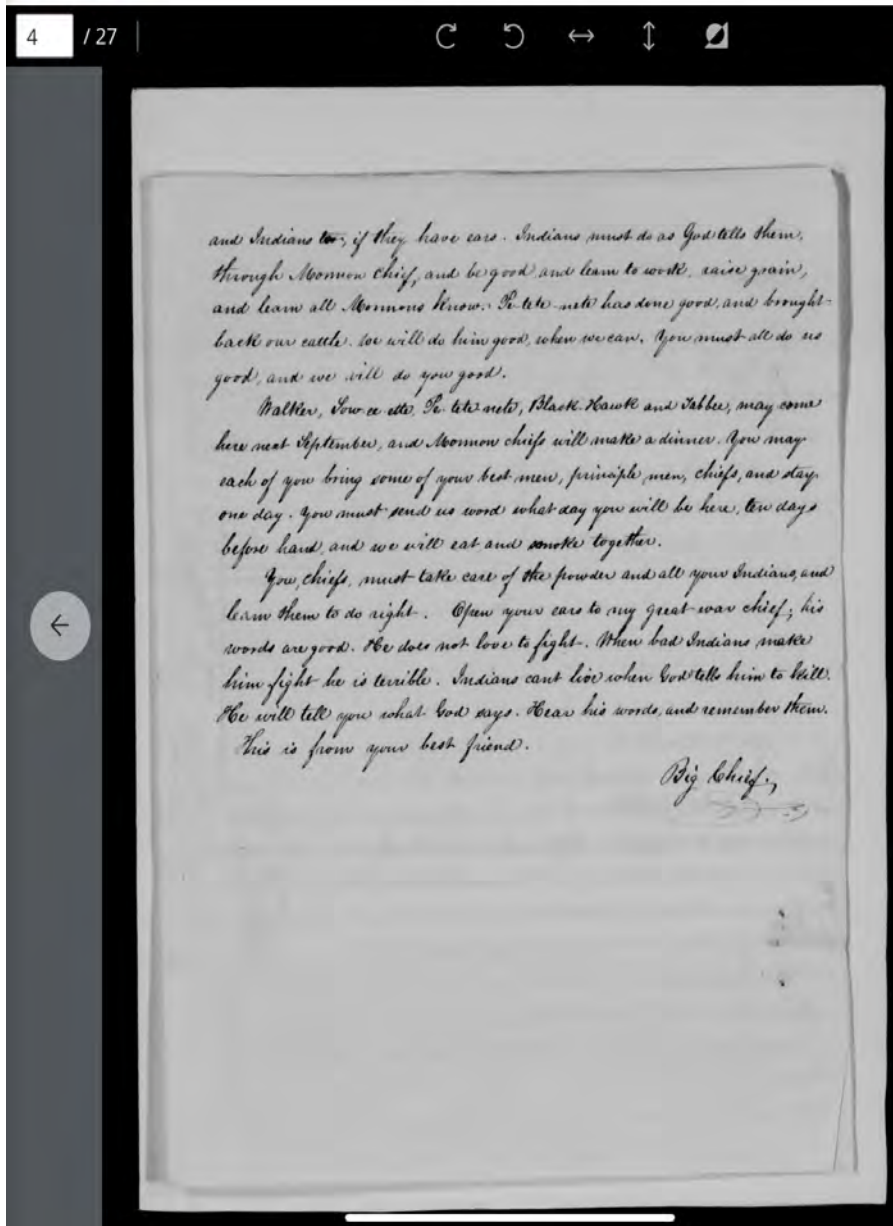 4 / 27
and Indians too, if they have ears. Indians must do as God tells them,
through Mormon chief, and be good and learn to work, raise grain,
and learn all Mormons know. Pe-tete-nete has done good, and brought
back our cattle. We will do him good, when we can. You must all do us
good, and we will do you good.
Walker, Sow-ee-ette, Pe-tete-nete, Black-Hawk and Tabbee, may come
here next September, and Mormon chiefs will make a dinner. You may
each of you bring some of your best men, principle men, chiefs, and stay
one day. You must send us word what day you will be here, ten days
before hand, and we will eat and smoke together.
You, chiefs, must take care of the powder and all your Indians, and
learn them to do right. Open your ears to my great war chief; his
words are good. He does not love to fight. When bad Indians make
him fight he is terrible. Indians cant live when God tells him to kill.
He will tell you what God says. Hear his words, and remember them.
This is from your best friend.
Big Chief.